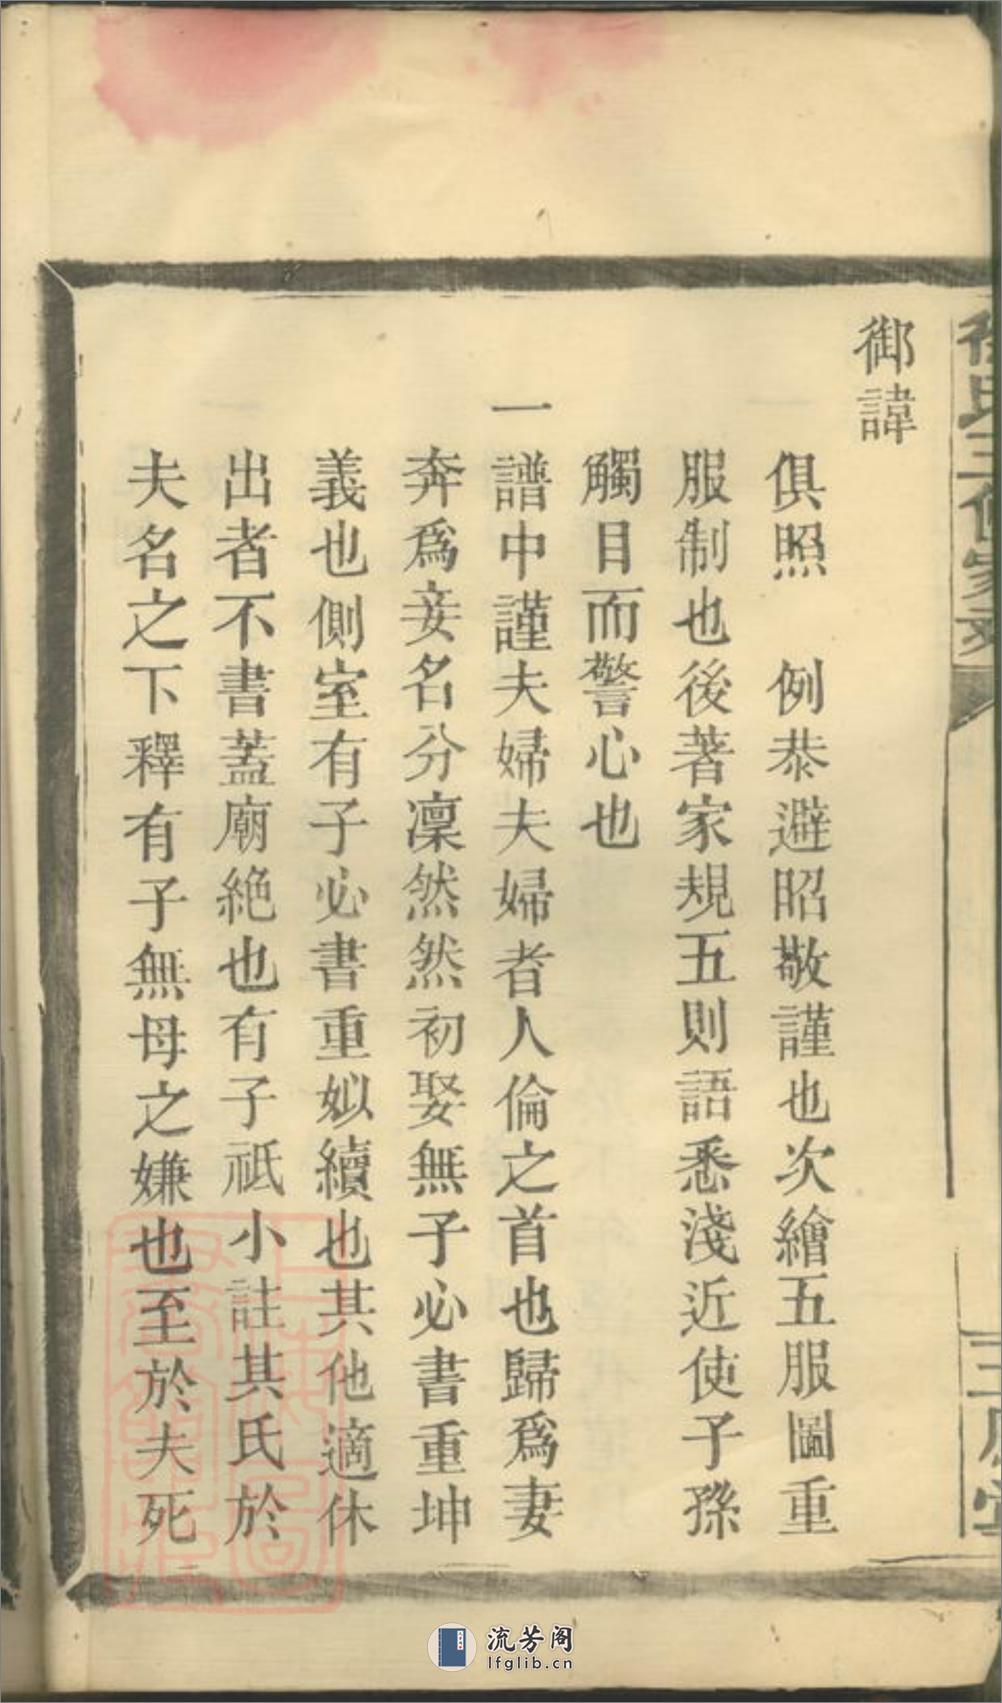 御諱
俱照　例恭避昭敬謹也次繪五服圖重
服制也後著家規五則語悉淺近使子孫
觸目而警心也
一譜中謹夫婦夫婦者人倫之首也歸爲妻
奔爲妾名分凜然然初娶無子必書重坤
義也側室有子必書重姒續也其他適休
出者不書蓋廟絕也有子祇小註其氏於
夫名之下釋有子無母之嫌也至於夫死
流芳阁
lfglib.cn